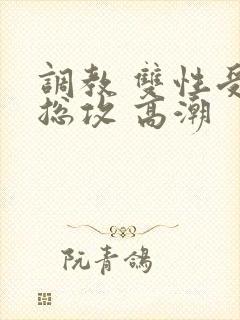 調教 雙性受
總攻 高潮
阮青鴿